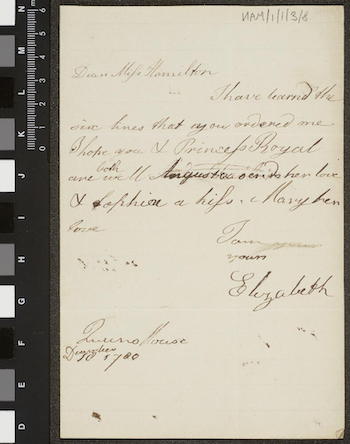 HAM/1/1/3/8
Dear Miss Hamilton
I have learnd the
six lines that you ordered me
I hope you & Princess Royal
are both well Augusta sends her love
& Sophia a kiss. Mary her
love
I am
yours
Elizabeth
Queens House
December
10 1780